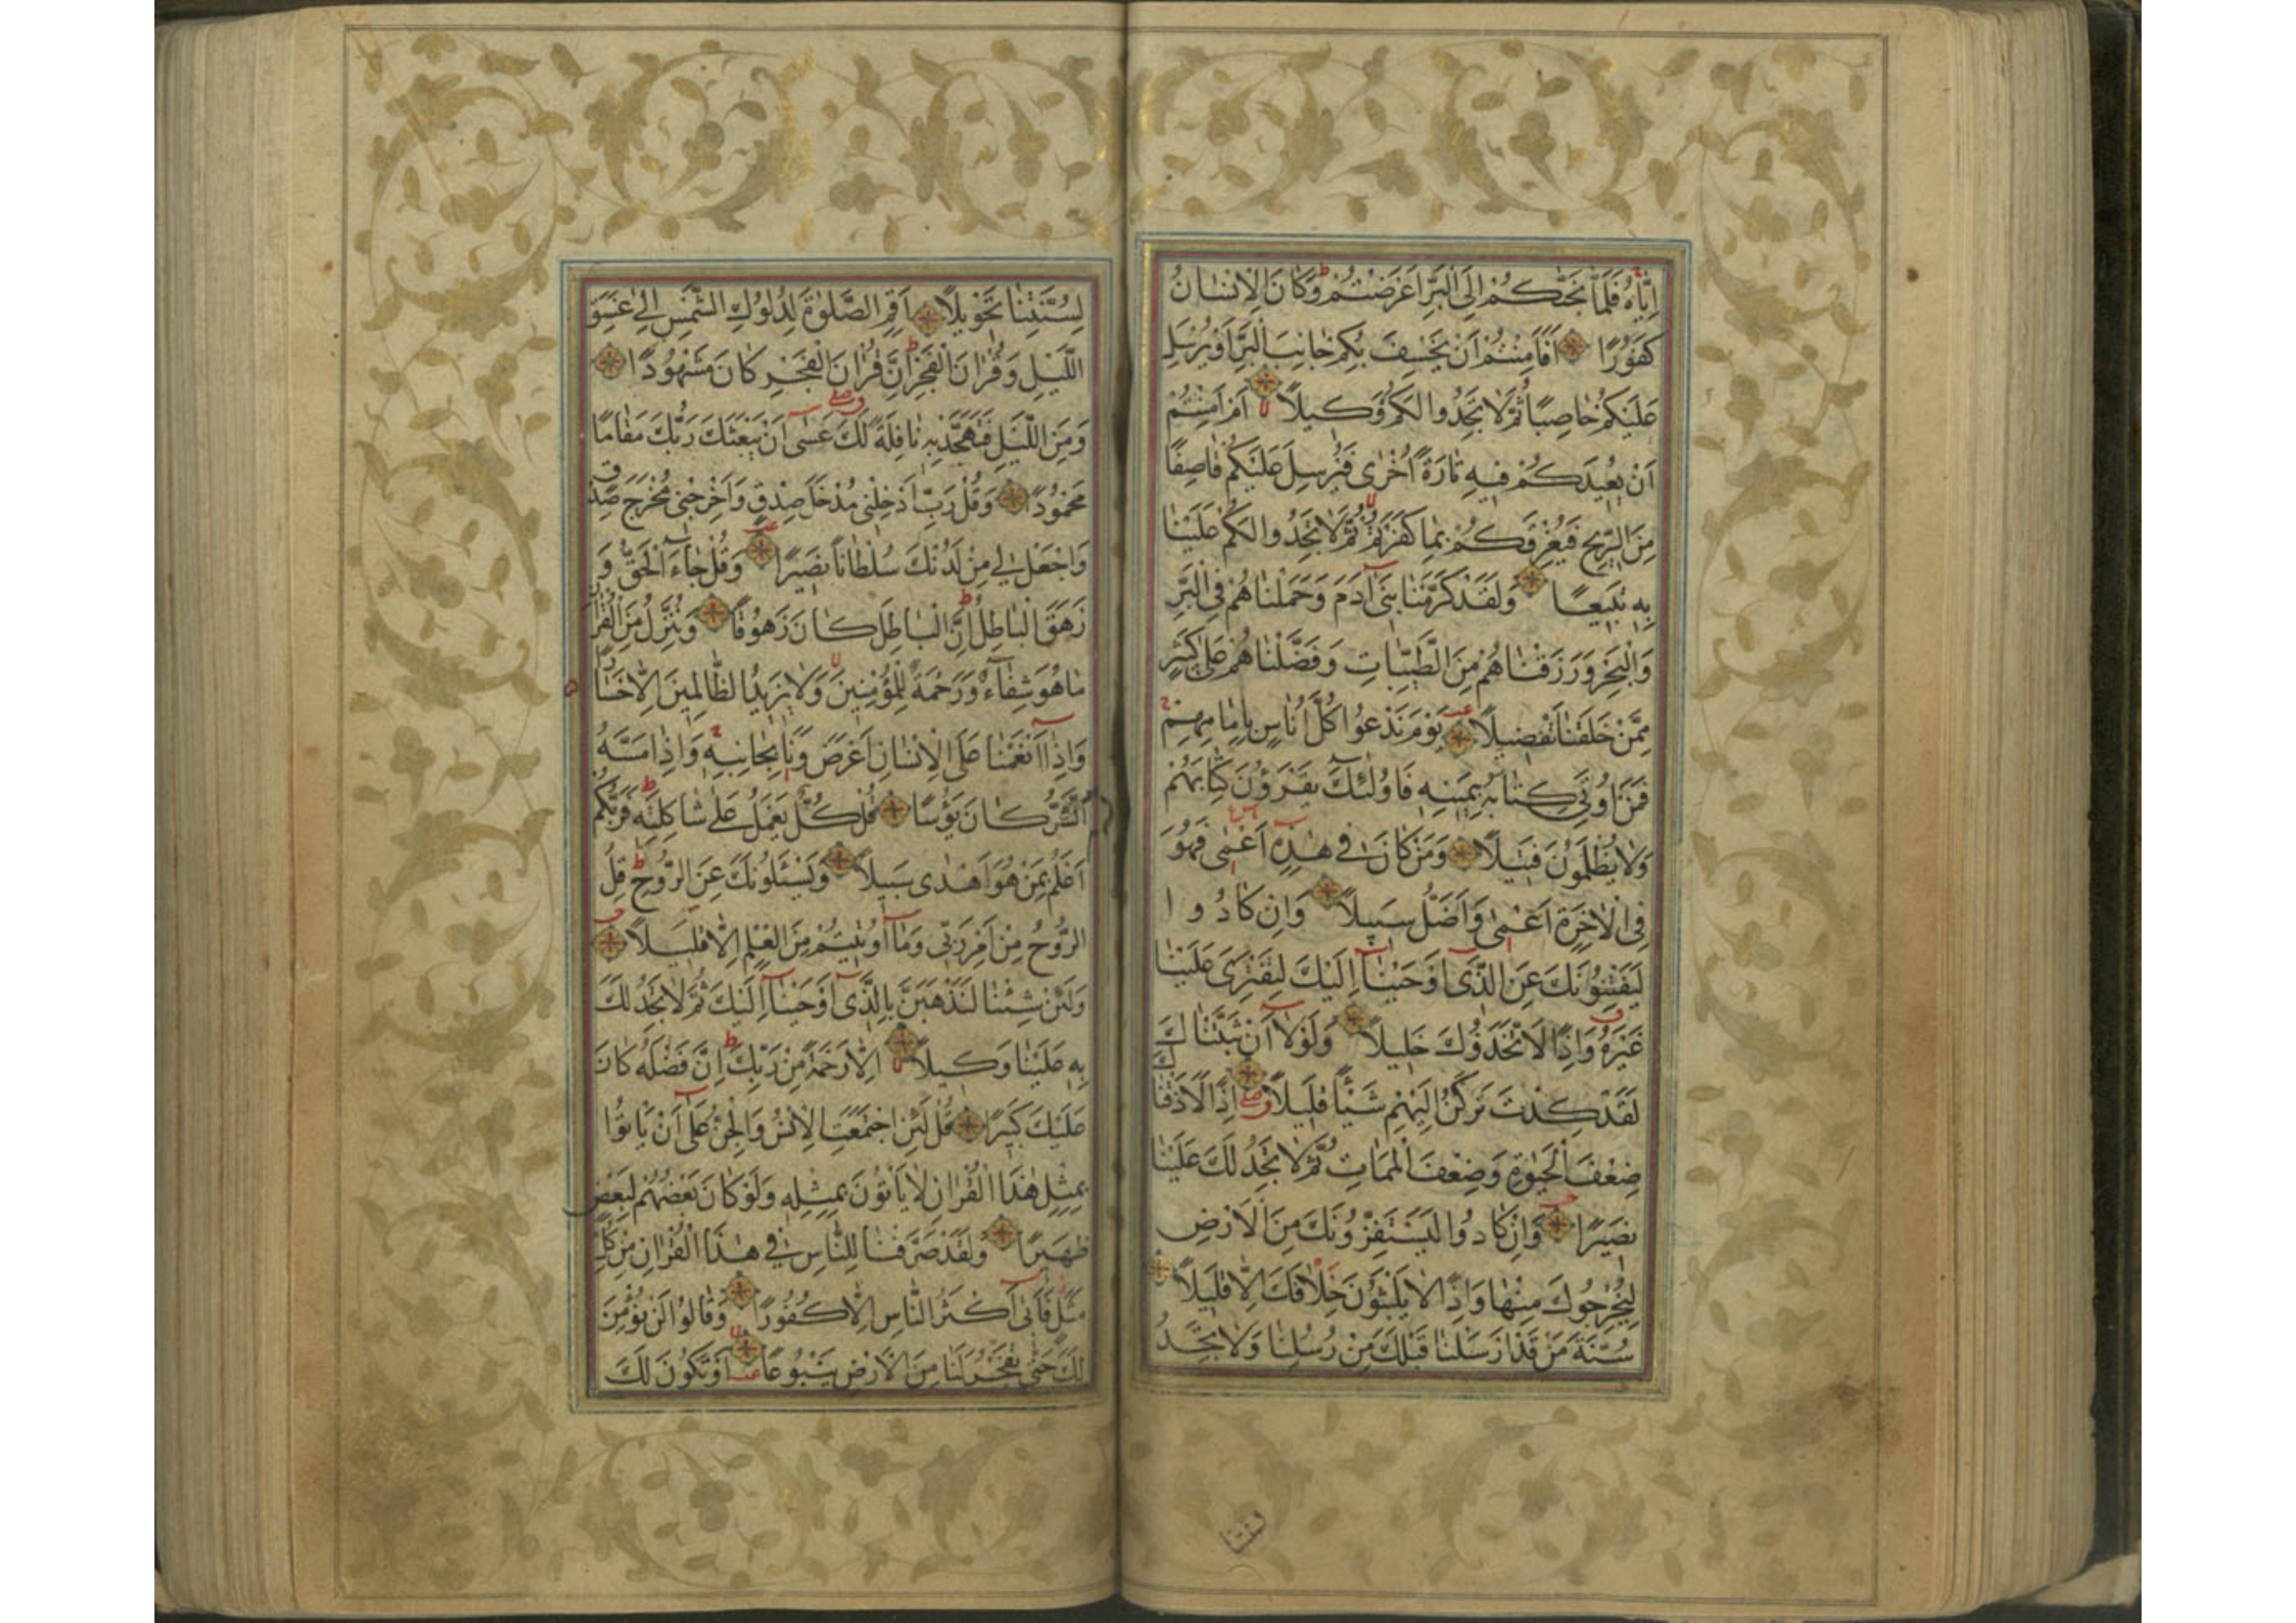 اِيَّاهُ فَلَمَّا نَجّٰىكُمْ اِلَى الْبَرِّ اَعْرَضْتُمْ ط وَكَانَ الْاِنْسَانُ
كَفُورًا اَفَاَمِنْتُمْ اَنْ يَخْسِفَ بِكُمْ جَانِبَ الْبَرِّ اَوْ يُرْسِلَ
عَلَيْكُمْ حَاصِبًا ثُمَّ لَا تَجِدُوا لَكُمْ وَكِيلًا لا اَمْ اَمِنْتُمْ
اَنْ يُعِيدَكُمْ فِيهِ تَارَةً اُخْرٰى فَيُرْسِلَ عَلَيْكُمْ قَاصِفًا
مِنَ الرِّيحِ فَيُغْرِقَكُمْ بِمَا كَفَرْتُمْ لا ثُمَّ لَا تَجِدُوا لَكُمْ عَلَيْنَا
بِهِ تَبِيعًا وَلَقَدْ كَرَّمْنَا بَنِىٓ اٰدَمَ وَحَمَلْنَاهُمْ فِى الْبَرِّ
وَالْبَحْرِ وَرَزَقْنَاهُمْ مِنَ الطَّيِّبَاتِ وَفَضَّلْنَاهُمْ عَلٰى كَثِيرٍ
مِمَّنْ خَلَقْنَا تَفْضِيلًا يَوْمَ نَدْعُوا كُلَّ اُنَاسٍ بِاِمَامِهِمْ ج
فَمَنْ اُوتِىَ كِتَابَهُ بِيَمِينِهِ فَاُولٰٓئِكَ يَقْرَؤُنَ كِتَابَهُمْ
وَلَا يُظْلَمُونَ فَتِيلًا وَمَنْ كَانَ فِى هٰذِهِٓ اَعْمٰى فَهُوَ
فِى الْاٰخِرَةِ اَعْمٰى وَاَضَلُّ سَبِيلًا وَاِنْ كَادُوا
لَيَفْتِنُونَكَ عَنِ الَّذِىٓ اَوْحَيْنَآ اِلَيْكَ لِتَفْتَرِىَ عَلَيْنَا
غَيْرَهُ وَاِذًا لَاتَّخَذُوكَ خَلِيلًا وَلَوْلَآ اَنْ ثَبَّتْنَاكَ
لَقَدْ كِدْتَ تَرْكَنُ اِلَيْهِمْ شَيْئًا قَلِيلًا اِذًا لَاَذَقْنَاكَ
ضِعْفَ الْحَيٰوةِ وَضِعْفَ الْمَمَاتِ ثُمَّ لَا تَجِدُ لَكَ عَلَيْنَا
نَصِيرًا وَاِنْ كَادُوا لَيَسْتَفِزُّونَكَ مِنَ الْاَرْضِ
لِيُخْرِجُوكَ مِنْهَا وَاِذًا لَا يَلْبَثُونَ خِلَافَكَ اِلَّا قَلِيلًا
سُنَّةَ مَنْ قَدْ اَرْسَلْنَا قَبْلَكَ مِنْ رُسُلِنَا وَلَا تَجِدُ
لِسُنَّتِنَا
لِسُنَّتِنَا تَحْوِيلًا اَقِمِ الصَّلٰوةَ لِدُلُوكِ الشَّمْسِ اِلٰى غَسَقِ
اللَّيْلِ وَقُرْاٰنَ الْفَجْرِ ط اِنَّ قُرْاٰنَ الْفَجْرِ كَانَ مَشْهُودًا
وَمِنَ اللَّيْلِ فَتَهَجَّدْ بِهِ نَافِلَةً لَكَ عَسٰىٓ اَنْ يَبْعَثَكَ رَبُّكَ مَقَامًا
مَحْمُودًا وَقُلْ رَبِّ اَدْخِلْنِى مُدْخَلَ صِدْقٍ وَاَخْرِجْنِى مُخْرَجَ صِدْقٍ
وَاجْعَلْ لِى مِنْ لَدُنْكَ سُلْطَانًا نَصِيرًا وَقُلْ جَآءَ الْحَقُّ وَ
زَهَقَ الْبَاطِلُ ط اِنَّ الْبَاطِلَ كَانَ زَهُوقًا وَنُنَزِّلُ مِنَ الْقُرْاٰنِ
مَا هُوَ شِفَآءٌ وَرَحْمَةٌ لِلْمُؤْمِنِينَ لا وَلَا يَزِيدُ الظَّالِمِينَ اِلَّا خَسَارًا
وَاِذَآ اَنْعَمْنَا عَلَى الْاِنْسَانِ اَعْرَضَ وَنَاٰ بِجَانِبِهِ ج وَاِذَا مَسَّهُ
الشَّرُّ كَانَ يَؤُسًا قُلْ كُلٌّ يَعْمَلُ عَلٰى شَاكِلَتِهِ ط فَرَبُّكُمْ
اَعْلَمُ بِمَنْ هُوَ اَهْدٰى سَبِيلًا وَيَسْئَلُونَكَ عَنِ الرُّوحِ ط قُلِ
الرُّوحُ مِنْ اَمْرِ رَبِّى وَمَآ اُوتِيتُمْ مِنَ الْعِلْمِ اِلَّا قَلِيلًا
وَلَئِنْ شِئْنَا لَنَذْهَبَنَّ بِالَّذِىٓ اَوْحَيْنَآ اِلَيْكَ ثُمَّ لَا تَجِدُ لَكَ
بِهِ عَلَيْنَا وَكِيلًا لا اِلَّا رَحْمَةً مِنْ رَبِّكَ ط اِنَّ فَضْلَهُ كَانَ
عَلَيْكَ كَبِيرًا قُلْ لَئِنِ اجْتَمَعَتِ الْاِنْسُ وَالْجِنُّ عَلٰٓى اَنْ يَاْتُوا
بِمِثْلِ هٰذَا الْقُرْاٰنِ لَا يَاْتُونَ بِمِثْلِهِ وَلَوْ كَانَ بَعْضُهُمْ لِبَعْضٍ
ظَهِيرًا وَلَقَدْ صَرَّفْنَا لِلنَّاسِ فِى هٰذَا الْقُرْاٰنِ مِنْ كُلِّ
مَثَلٍ فَاَبٰىٓ اَكْثَرُ النَّاسِ اِلَّا كُفُورًا وَقَالُوا لَنْ نُؤْمِنَ
لَكَ حَتّٰى تَفْجُرَ لَنَا مِنَ الْاَرْضِ يَنْبُوعًا لا اَوْ تَكُونَ لَكَ